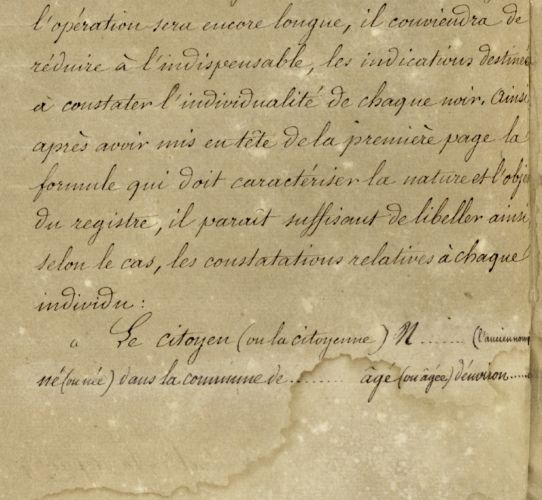 l'opération sera encore longue, il conviendra de
réduire à l'indispensable, les indications destinée
à constater l'individualité de chaque noir. Ainsi
après avoir mis en tête de la première page la
formule qui doit caractériser la nature et l'obje
du registre, il parait suffisant de libeller ainsi
selon le cas, les constatations relatives à chaque
individu :
" Le citoyen (ou la citoyenne) N ....... (l'ancien nom
né (ou née) dans la commune de ......... âgé (ou âgée) d'environ .....